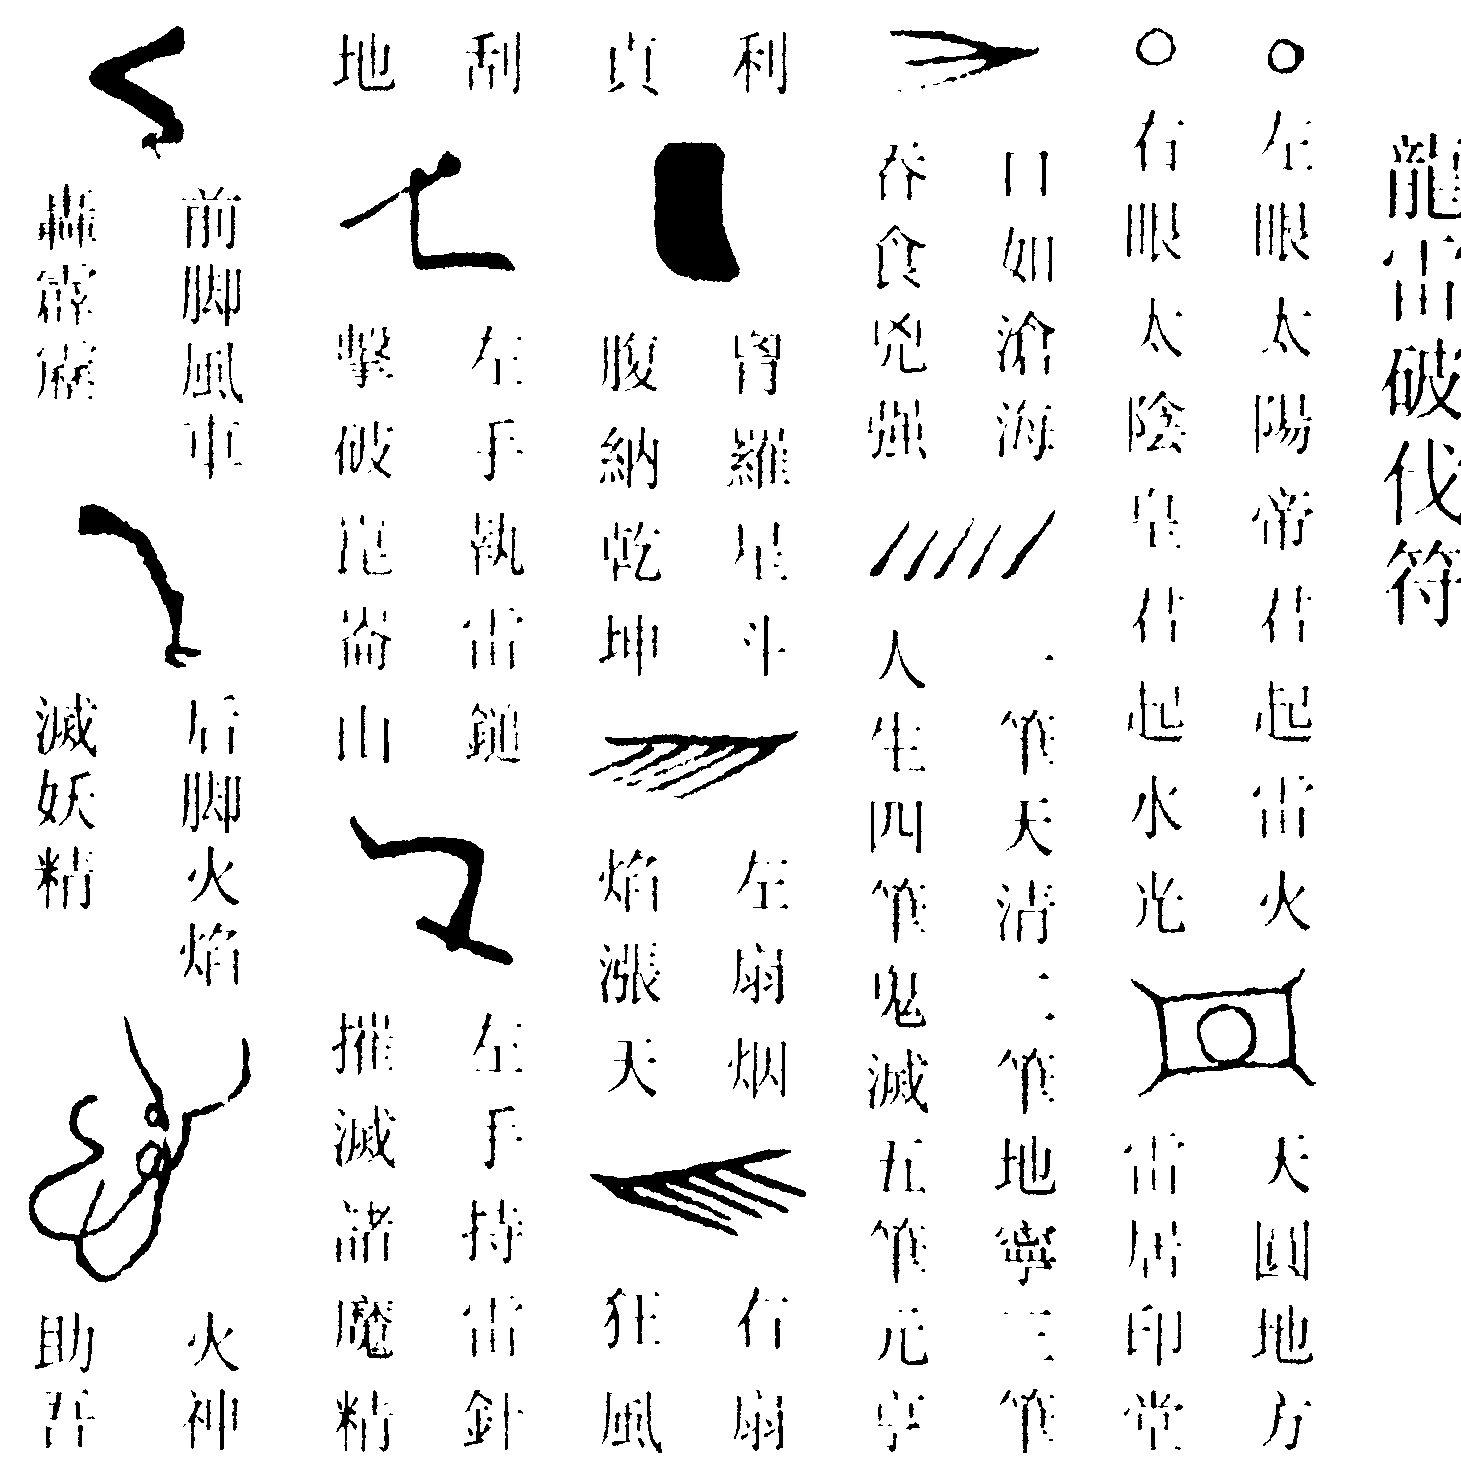 龍雷破伐符
左眼太陽帝君起雷火
右眼太陰皇君起水光
天圓地方
雷居印堂
口如滄海
吞食兇强
一筆天清二筆地寧三筆
人生四筆鬼滅五筆元亨
利
貞
胷羅星斗
腹納乾坤
左扇烟
焰漲天
右扇
狂風
刮
地
左手執雷鎚
擊破崑崙山
左手持雷針
摧滅諸魔精
前脚風車
轟霹靂
后脚火焰
滅妖精
火神
助吾